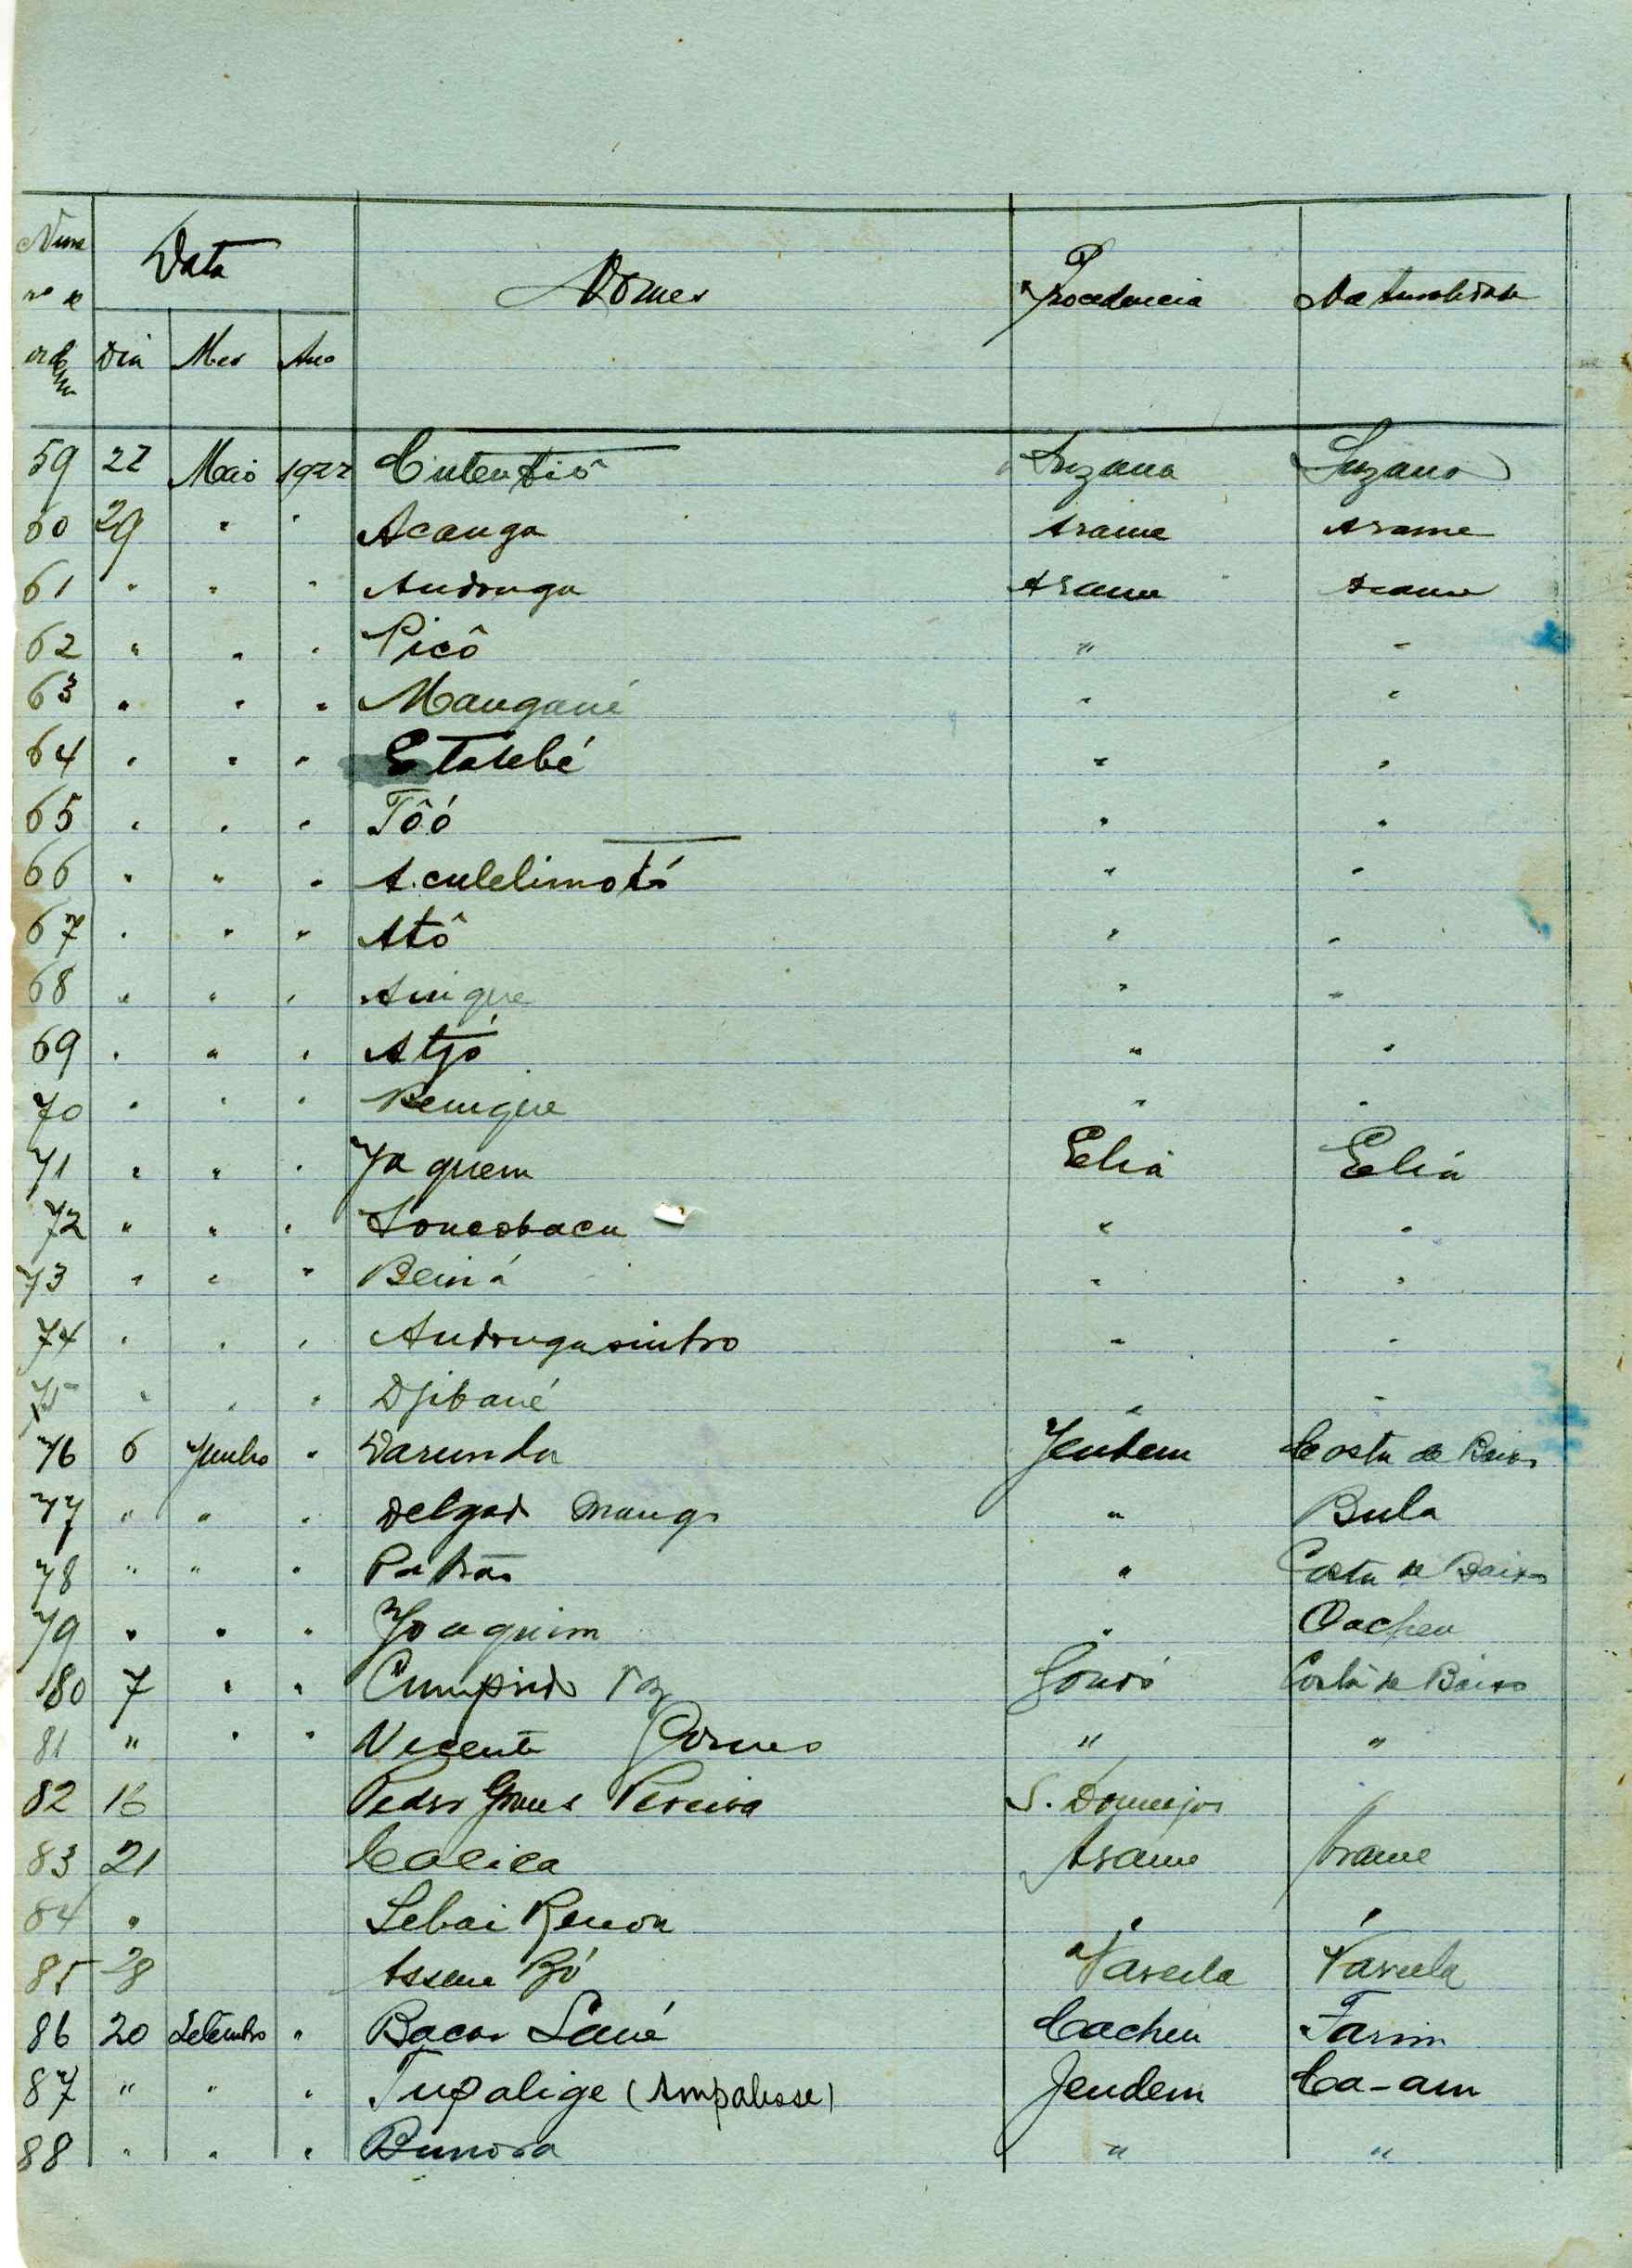 Data Nomes Procedencia Naturalidade
Dia Mes Ano
59 22 Maio 1922 Cutentiô Suzana Suzana
60 29 " " Acanga Arame Arame
61 " " " Andonga Arame Arame
62 " " " Picô " "
63 " " " Mangané " "
64 " " " Etatebé " "
65 " " " Tôó " "
66 " " " Aculelimotó " "
67 " " " Atô " "
68 " " " " "
69 " " " Atjó " "
70 " " " " "
71 " " " Jaquem Eliá Eliá
72 " " " " "
73 " " " Beiná " "
74 " " " Andongasintro " "
75 " " " Djibané " "
76 6 Junho " Darunda Jendem Costa de Baixo
77 " " " Delgado Mango " Bula
78 " " " Patrão " Costa de Baixo
79 " " " Joaquim " Cacheu
80 7 " " Cumprido Vaz Costa de Baixo
81 " " " Vicente Gomes " "
82 16 Pedro Gomes Pereira S. Domingos "
83 21 Calila Arame Arame
84 " " "
85 28 Varela Varela
86 20 Setembro " Bacar Sané Cacheu Farim
87 " " " Tupalige (Ampalisse) Jendem Ca-am
88 " " " Bunora " "